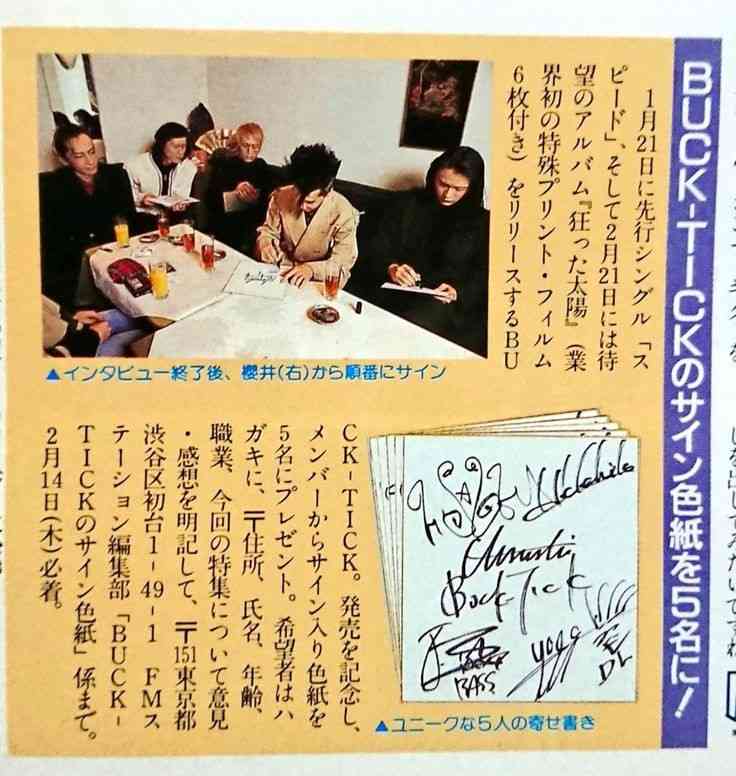 BUCK-TICKのサイン色紙を5名に!
1月21日に先行シングル「ス
ピード」、そして2月21日には待
望のアルバム『狂った太陽』(業
界初の特殊プリント・フィルム
6枚付き)をリリースするBU
▲インタビュー終了後、櫻井(右)から順番にサイン
CK-TICK。発売を記念し、
メンバーからサイン入り色紙を
5名にプレゼント。希望者はハ
ガキに、〒住所、氏名、年齢、
職業、今回の特集について意見
・感想を明記して、〒151東京都
渋谷区初台1-49-1 FMス
テーション編集部「BUCK-
TICKのサイン色紙」係まで。
2月14日(木)必着。
BUCK-TICK
BASS
▲ユニークな5人の寄せ書き